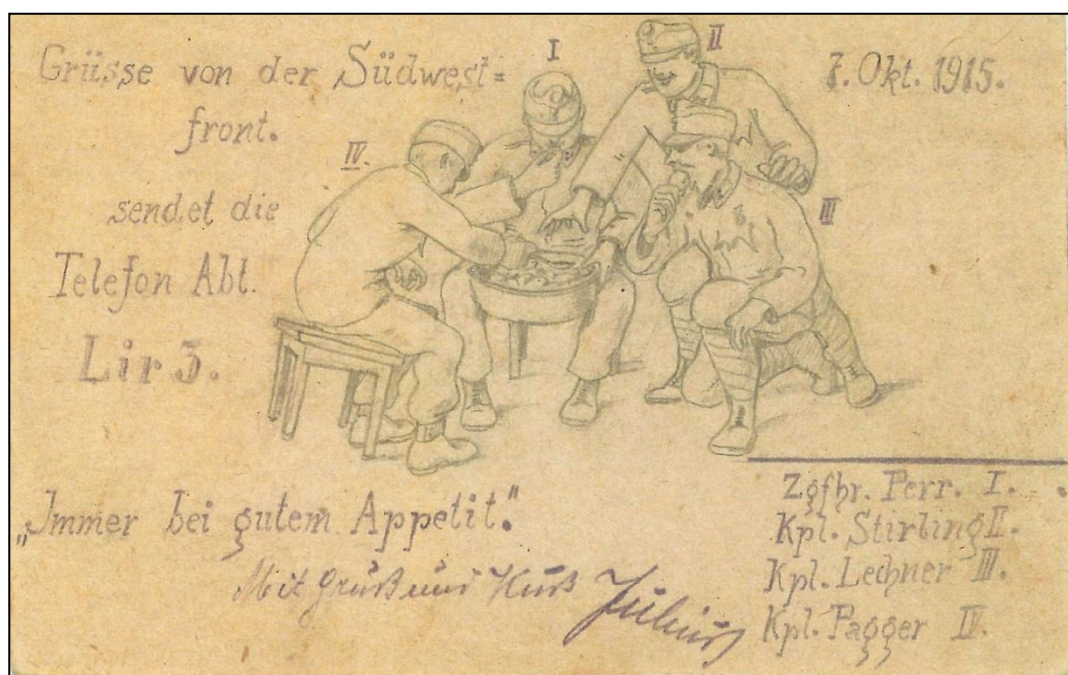 Grüsse von der Südwest=
front.
sendet die
Telefon Abt.
Lir 3.
I
II
III
IV.
7. Okt. 1915.
„Immer bei gutem Appetit."
Mit Gruß und Kuß Julius
Zgfhr. Perr. I.
Kpl. Stirling II.
Kpl. Lechner III.
Kpl. Pagger IV.